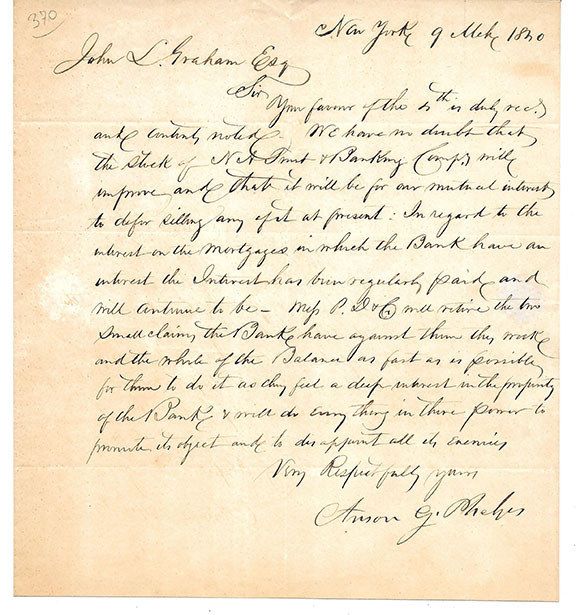 370
New York 9 Mch 1840
John L. Graham Esq
Sir
Your favour of the 4th is duly recd
and contents noted. We have no doubt that
the stock of N A Trust & Banking Compy will
improve and that it will be for our mutual interest
to defer selling any of it at present: In regard to the
interest on the Mortgages in which the Bank have an
interest the Interest has been regularly paid and
will continue to be - Mess P. D & Co will retire the two
small claims the Bank have against them this week
and the whole of the Balance as fast as is possible
for them to do it as they feel a deep interest in the prosperity
of the Bank & will do every thing in there power to
promote its object and to disappoint all its Enemies
Very Respectfully yours
Anson G. Phelps